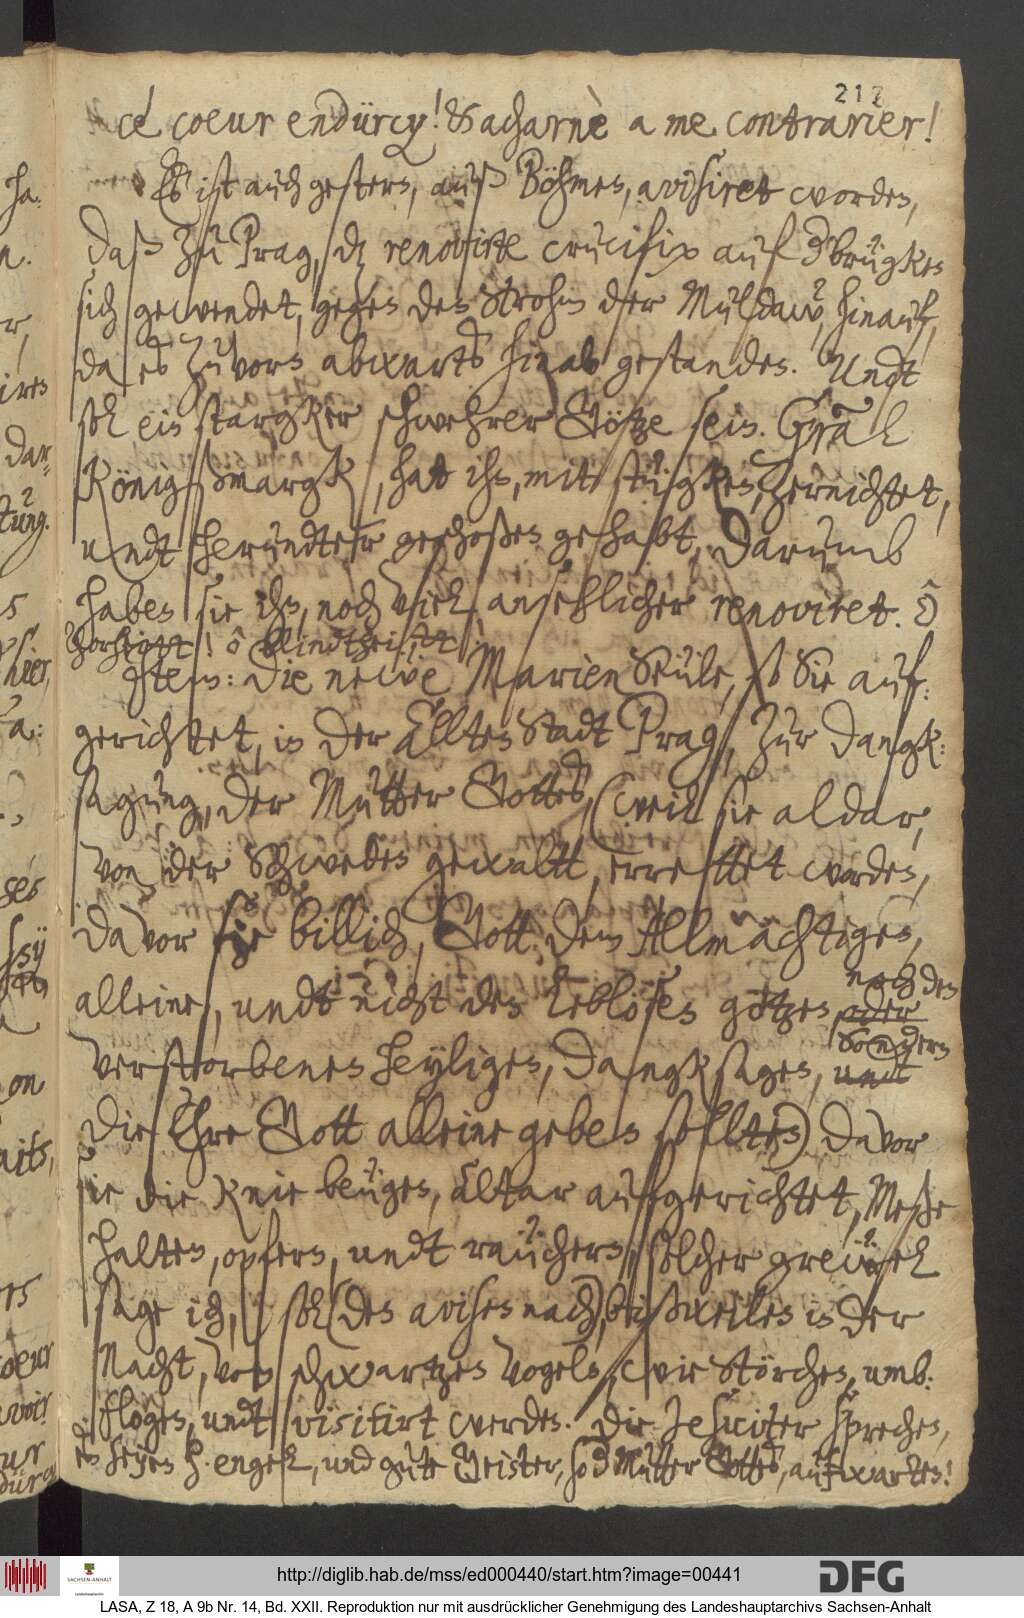 212
ce coeur endürcy! & acharnè a me contrarier!
Es ist auch gestern, auß Böhmen, avisiret worden,
daß zu Prag, dz renovirte crucifix auf d' brügken
sich gewendet, gegen den Strohm der Muldaw, hinauf,
da es zuvorn abwarts hinab gestanden. Undt
soll ein stargker schwehrer Götze sein. Graf
Königßmargk, hat ihn, mit stügken, zernichtet,
undt herundter geschoßen gehabt, Darumb
haben sie ihn, noch viel ansehlicher renoviret. ô
Thorheitt! ô blindtheitt!
Item: Die newe Marien Seule, so Sie auf:
gerichtet, in der Alten Stadt Prag, zur dangk:
sagung, der Mutter Gottes, (weil sie aldar,
von der Schweden gewaltt, errettet worden,
davor sie billich, Gott dem Allmächtigen,
alleine, undt nicht den leblosen götzen oder noch den
verstorbenen heyligen, dangksagen, undt sondern
die Ehre Gott alleine geben sollten) davor
sie die Knie beugen, Altar aufgerichtet, Meße
halten, opfern, undt räuchern, solcher grewel
sage ich, soll (den avisen nach) bißweilen in der
Nacht, von schwartzen Vogeln, wie Störchen, umb:
flogen, undt visitirt werden. Die Jesuiter sprechen,
es seyen die H. engel, und gute Geister, so d' Mutter Gottes, aufwarten!
http://diglib.hab.de/mss/ed000440/start.htm?image=00441
DFG
SACHSEN-ANHALT
LASA, Z 18, A 9b Nr. 14, Bd. XXII. Reproduktion nur mit ausdrücklicher Genehmigung des Landeshauptarchivs Sachsen-Anhalt